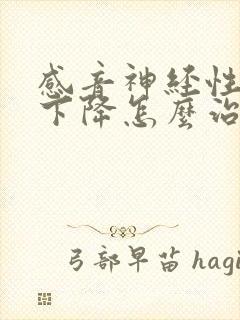 感音神経性
下降怎麼治
弓部早苗 hagi